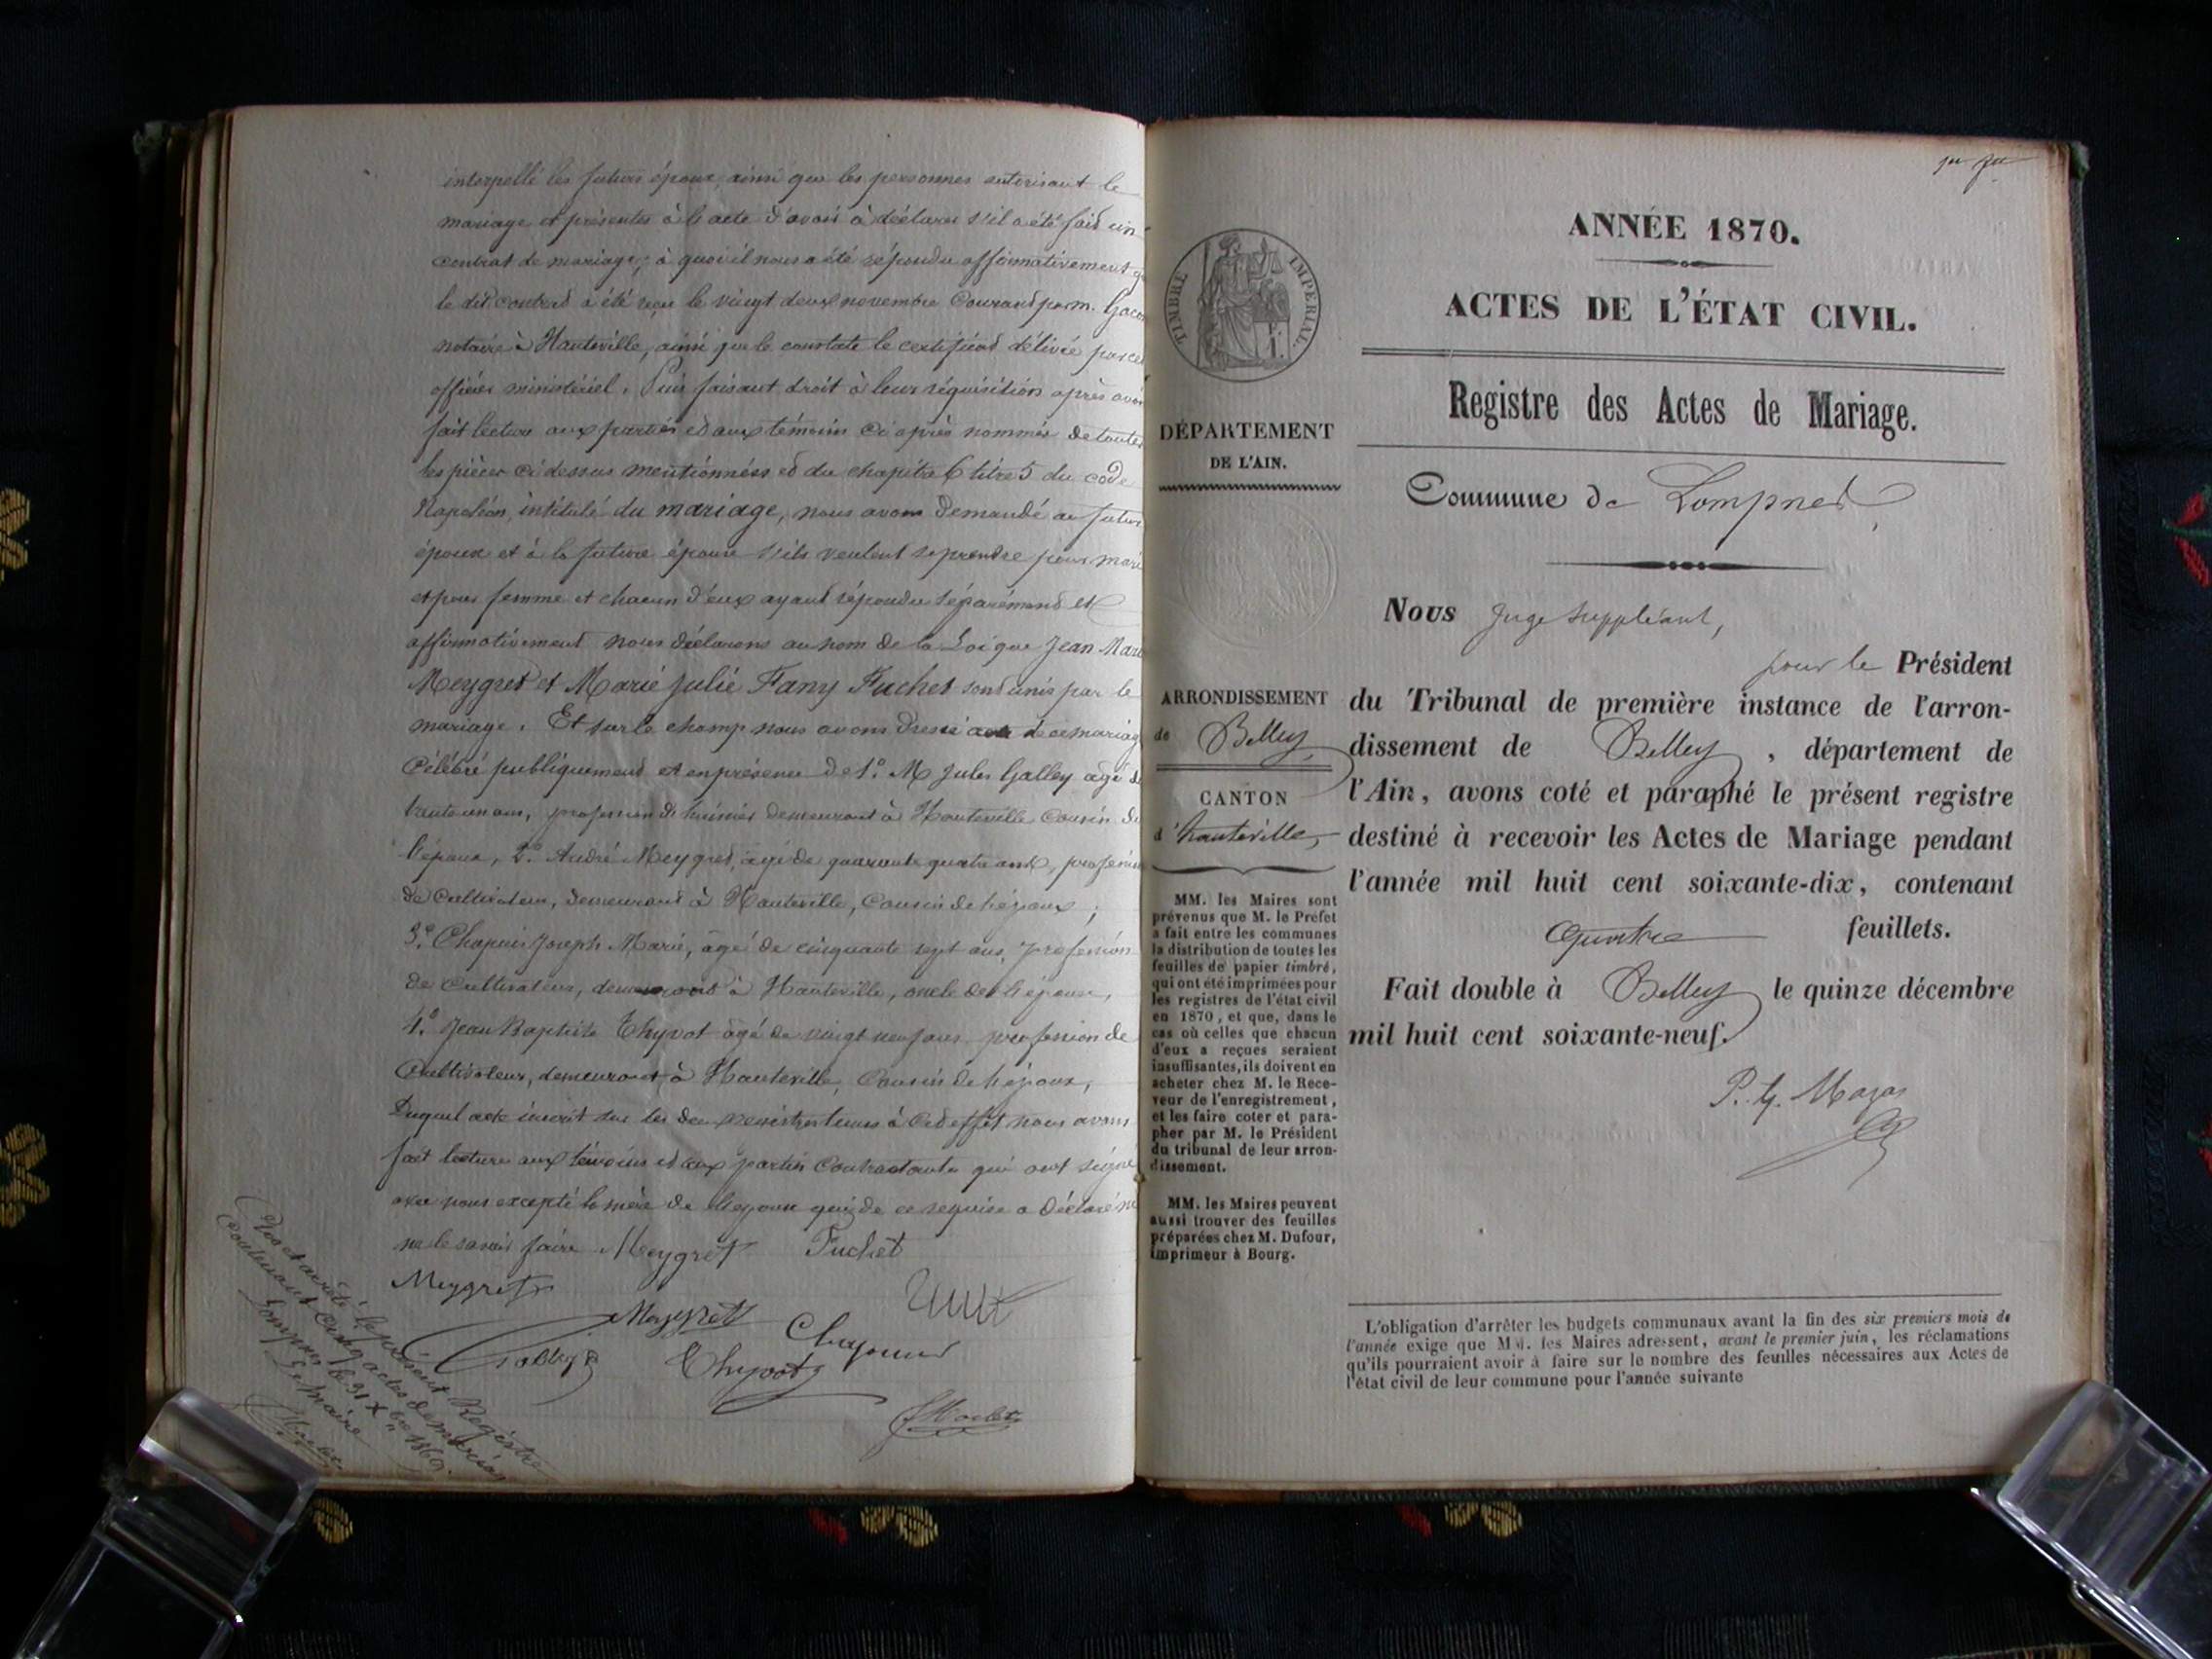 interpellé les futurs époux, ainsi que les personnes autorisant le
mariage et présentes à l'acte d'avoir à déclarer s'il a été fait un
contrat de mariage; à quoi il nous a été répondu affirmativement
le dit contrat a été reçu le vingt deux novembre courant par m. Gacon
notaire à Hauteville, ainsi que le constate le certificat délivré par cet
officier ministériel. Puis faisant droit à leur réquisition après avoir
fait lecture aux parties et aux témoins ci après nommés de toutes
les pièces ci dessus mentionnées et du chapitre 6 titre 5 du code
Napoléon, intitulé du mariage, nous avons demandé au futur
époux et à la future épouse s'ils veulent se prendre pour mari
et pour femme et chacun d'eux ayant répondu séparément et
affirmativement nous déclarons au nom de la Loi que Jean Marie
Meygret et Marie Julie Fany Fuchet sont unis par le
mariage. Et sur le champ nous avons dressé acte de ce mariage
célébré publiquement et en présence de 1.° M Jules Galley agé de
trente un ans, profession d'huissier demeurant à Hauteville cousin de
l'époux, 2.° André Meygret, agé de quarante quatre ans, profession
de cultivateur, demeurant à Hauteville, cousin de l'époux;
3.° Chapuis Joseph Marie, âgé de cinquante sept ans, profession
de cultivateur, demeurant à Hauteville, oncle de l'époux,
4.° Jean Baptiste Thyvot âgé de vingt neuf ans profession de
cultivateur, demeurant à Hauteville, Cousin de l'époux,
Duquel acte inscrit sur les deux registres tenus à cet effet nous avons
fait lecture aux témoins et aux parties contractantes qui ont signé
avec nous excepté la mère de l'époux qui de ce requise a déclaré
ne le savoir faire Meygret Fuchet
Meygret
Meygret
Galley Thyvot Chapuis
Vu et arrêté le présent Registre
Contenant Cinq actes de mariage
Lompnes le 31 Xbre 1869.
Le Maire
1er Jet
ANNÉE 1870.
ACTES DE L'ÉTAT CIVIL.
Registre des Actes de Mariage.
Commune de Lompnes
TIMBRE IMPERIAL.
DÉPARTEMENT
DE L'AIN.
ARRONDISSEMENT
de Belley
CANTON
d'hauteville
MM. les Maires sont
prévenus que M. le Préfet
a fait entre les communes
la distribution de toutes les
feuilles de papier timbré,
qui ont été imprimées pour
les registres de l'état civil
en 1870, et que, dans le
cas où celles que chacun
d'eux a reçues seraient
insuffisantes, ils doivent en
acheter chez M. le Rece-
veur de l'enregistrement,
et les faire coter et para-
pher par M. le Président
du tribunal de leur arron-
dissement.
MM. les Maires peuvent
aussi trouver des feuilles
préparées chez M. Dufour,
imprimeur à Bourg.
Nous Juge suppléant,
pour le Président
du Tribunal de première instance de l'arron-
dissement de Belley, département de
l'Ain, avons coté et paraphé le présent registre
destiné à recevoir les Actes de Mariage pendant
l'année mil huit cent soixante-dix, contenant
Quatre feuillets.
Fait double à Belley le quinze décembre
mil huit cent soixante-neuf.
L'obligation d'arrêter les budgets communaux avant la fin des six premiers mois de
l'année exige que MM. les Maires adressent, avant le premier juin, les réclamations
qu'ils pourraient avoir à faire sur le nombre des feuilles nécessaires aux Actes de
l'état civil de leur commune pour l'année suivante